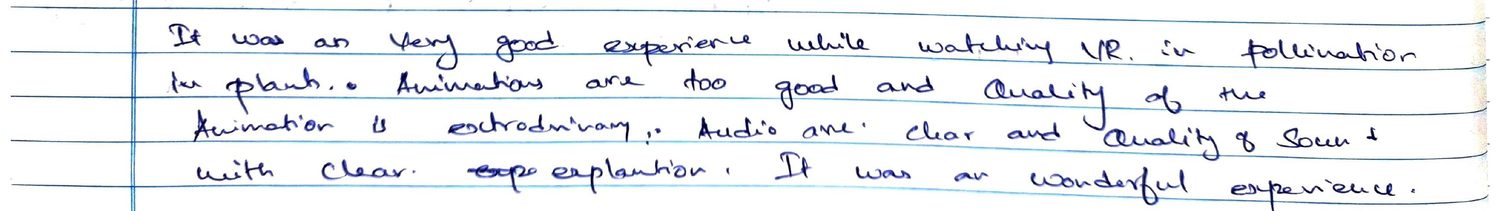 It was an very good experience while watching VR. in pollination
in plants.. Animations are too good and Quality of the
Animation is extrodninary.. Audio are. clear and Quality of Sound
with clear. explantion. It was an wonderful experience.